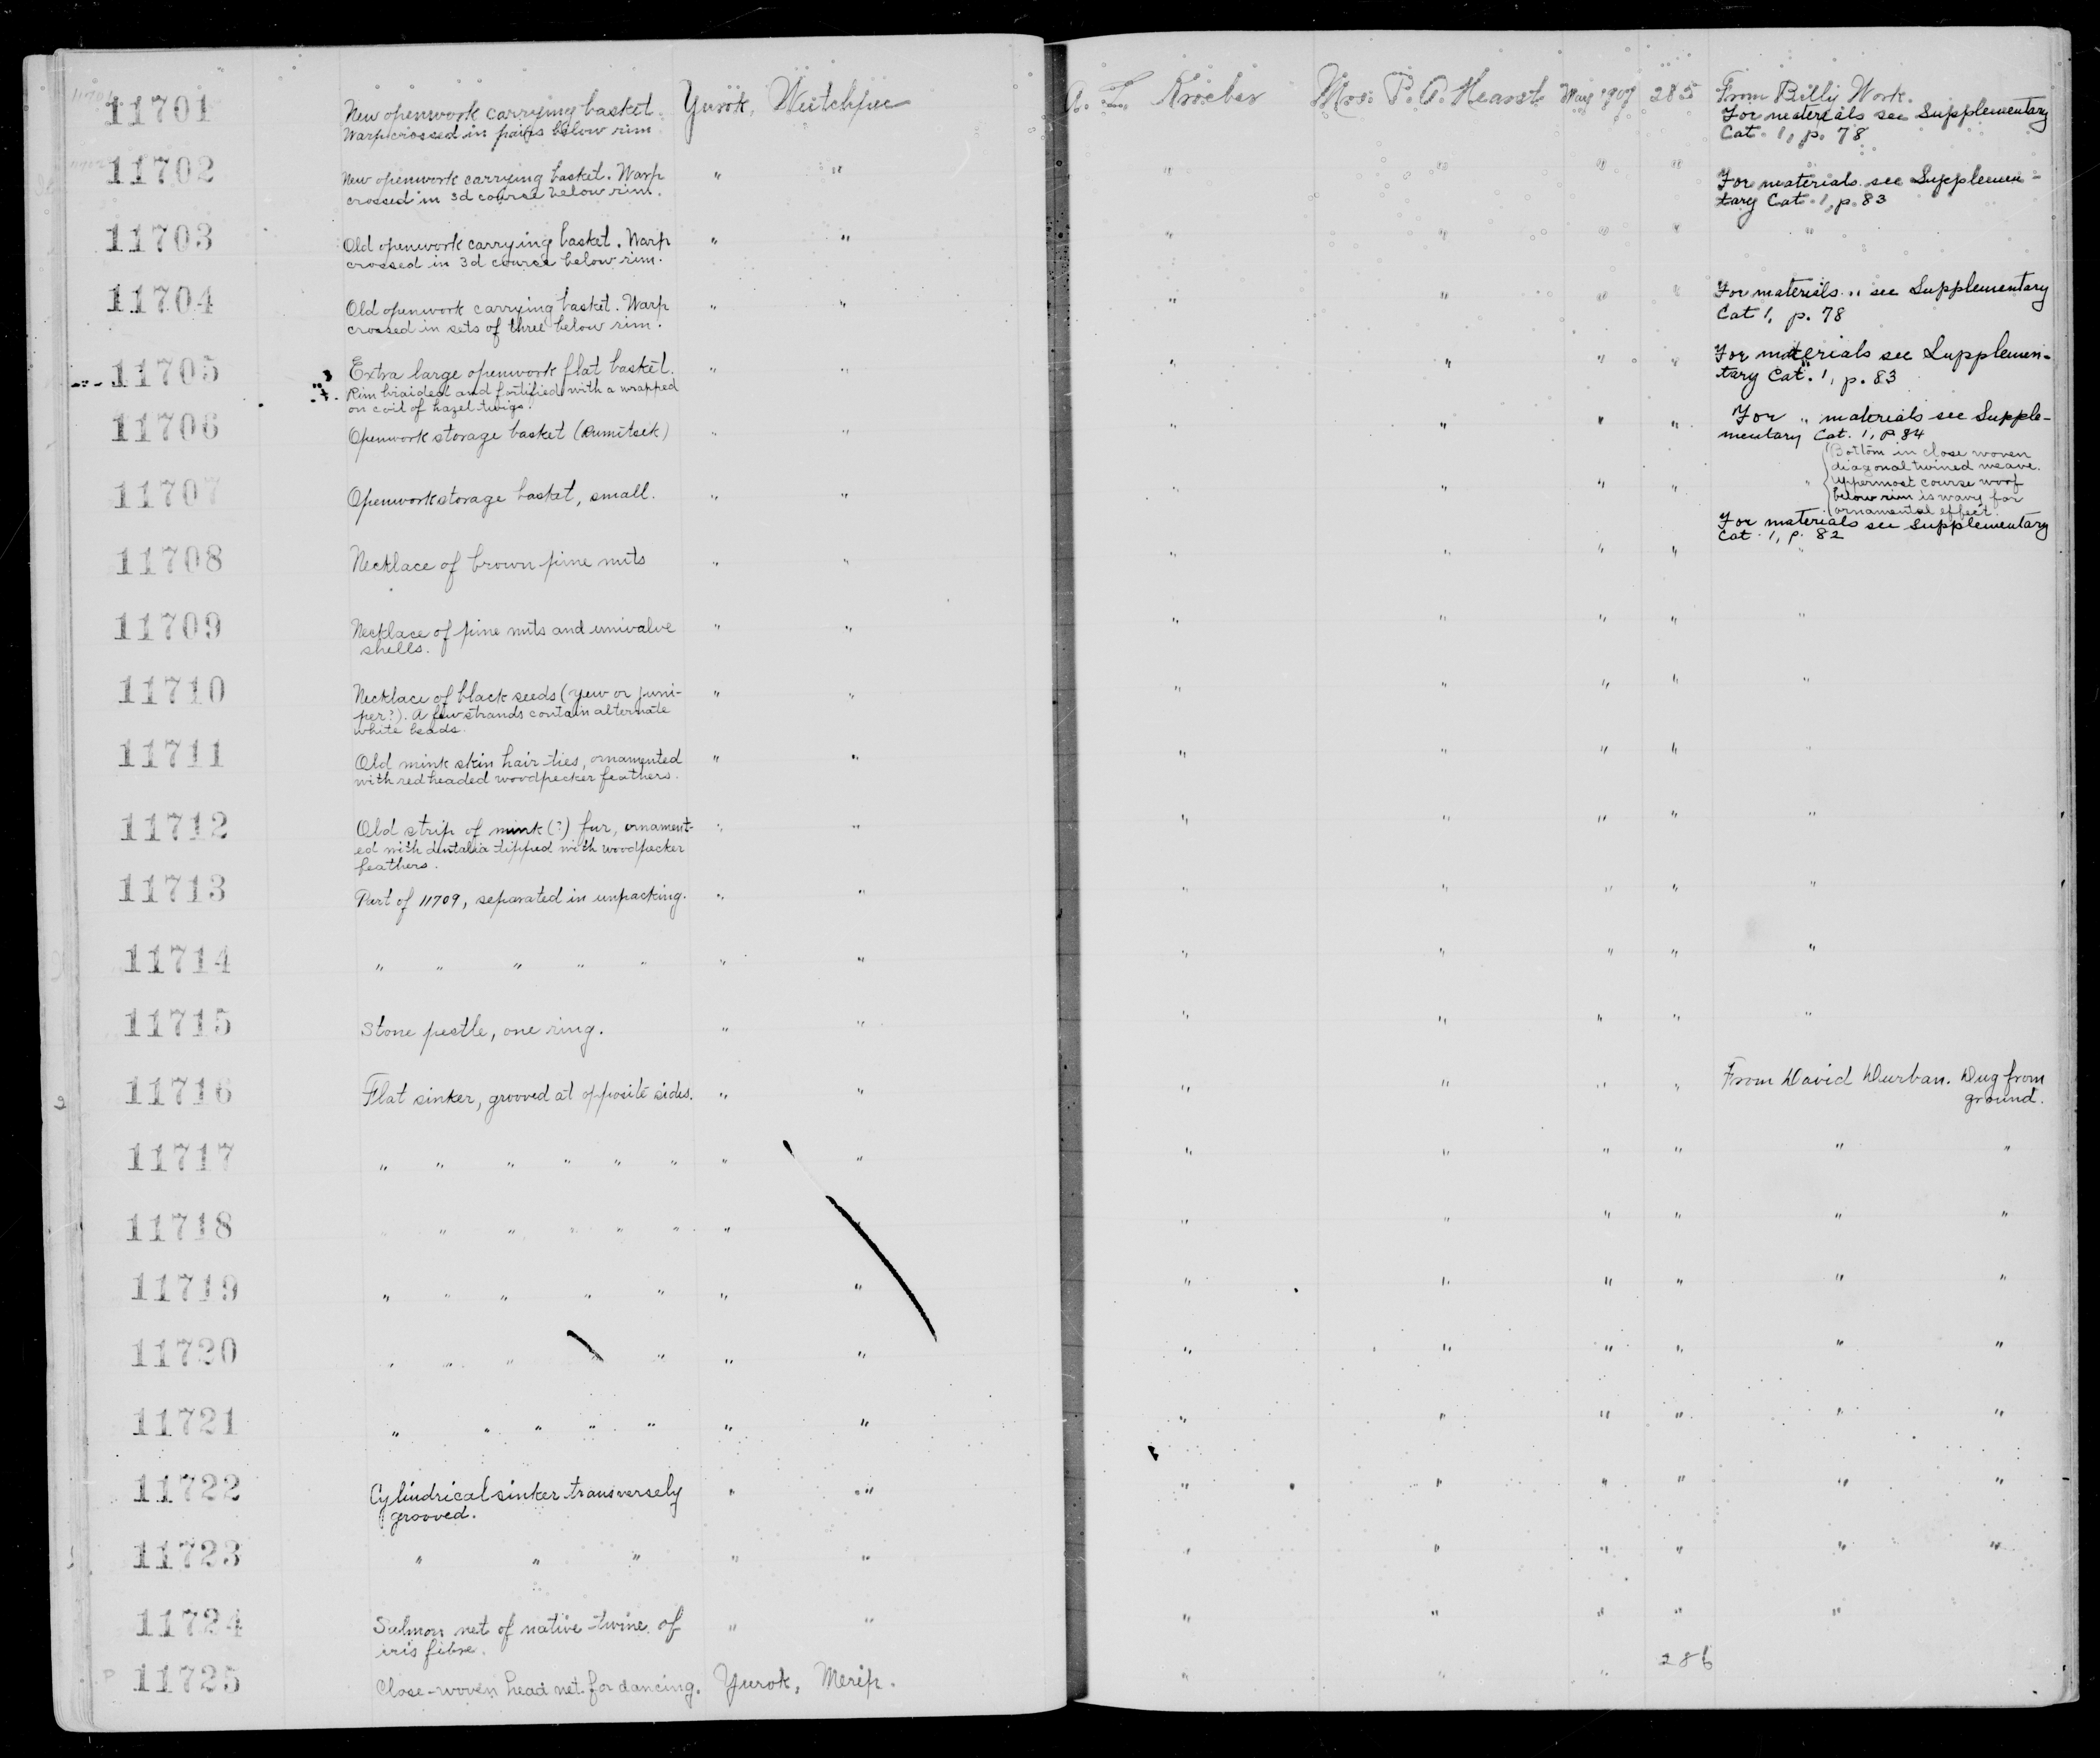 11701 New openwork carrying basket. Yurok, Weitchpec A. L. Kroeber Mrs. P. A. Hearst May 1907 285 From Billy Work.
Warp crossed in pairs below rim For materials see Supplementary
Cat. 1, p. 78
11702 New openwork carrying basket. Warp " " " " " " For materials see Supplemen-
crossed in 3d course below rim. tary Cat. 1, p. 83
11703 Old openwork carrying basket. Warp " " " " " " "
crossed in 3d course below rim.
11704 Old openwork carrying basket. Warp " " " " " " For materials " see Supplementary
crossed in sets of three below rim. Cat 1, p. 78
11705 Extra large openwork flat basket. " " " " " " For materials see Supplemen-
Rim braided and fortified with a wrapped tary Cat. 1, p. 83
on coil of hazel twigs.
11706 Openwork storage basket (rumitsek) " " " " " " For " materials see Supple-
mentary Cat. 1, p. 84
11707 Openwork storage basket, small. " " " " " " " Bottom in close woven
diagonal twined weave.
Uppermost course woof
below rim is wavy for
ornamental effect.
For materials see Supplementary
Cat. 1, p. 82
11708 Necklace of brown pine nuts " " " " " " "
11709 Necklace of pine nuts and univalve " " " " " " "
shells.
11710 Necklace of black seeds (yew or juni- " " " " " " "
per?). A few strands contain alternate
white beads.
11711 Old mink skin hair ties, ornamented " " " " " " "
with red headed woodpecker feathers.
11712 Old strip of mink (?) fur, ornament- " " " " " " "
ed with dentalia tipped with woodpecker
feathers.
11713 Part of 11709, separated in unpacking. " " " " " " "
11714 " " " " " " " " " " " "
11715 Stone pestle, one ring. " " " " " " "
11716 Flat sinker, grooved at opposite sides. " " " " " " From David Durban. Dug from
ground.
11717 " " " " " " " " " " " " " "
11718 " " " " " " " " " " " " " "
11719 " " " " " " " " " " " " "
11720 " " " " " " " " " " " " "
11721 " " " " " " " " " " " " "
11722 Cylindrical sinker transversely " " " " " " " "
grooved.
11723 " " " " " " " " " " "
11724 Salmon net of native twine of " " " " " " "
iris fibre.
11725 Close-woven head net for dancing. Yurok, Merip. " " " 286